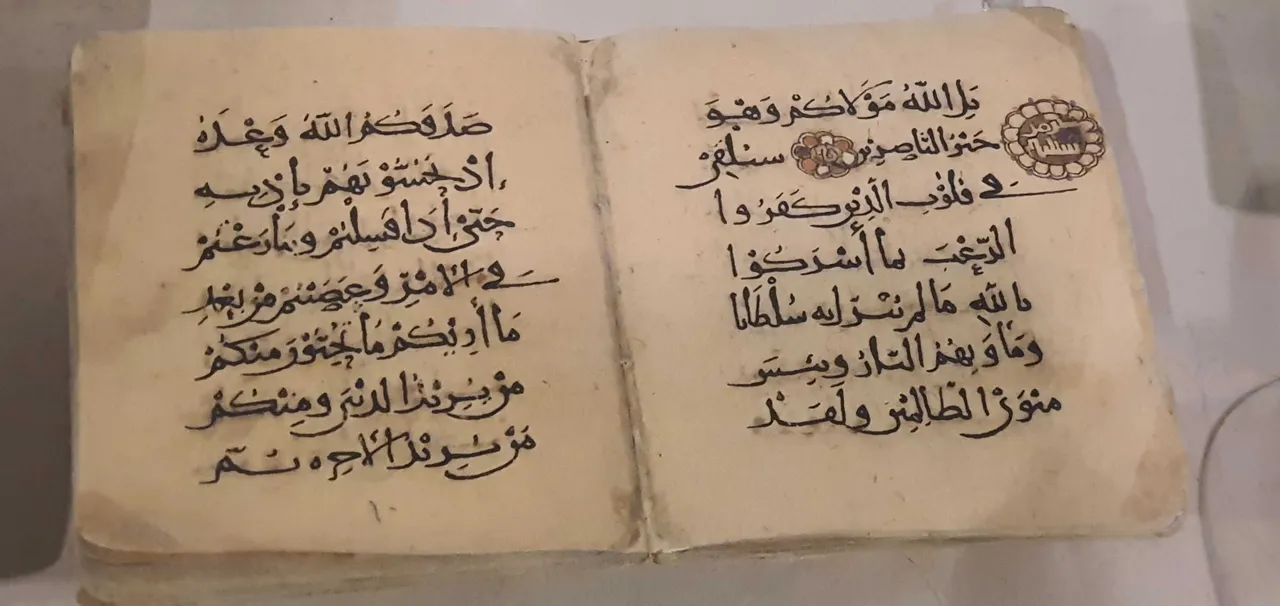 بَلِ اللّٰهُ مَوْلَاكُمْ وَهْوَ
خَيْرُ النَّاصِرِين سَنُلْقِى
فِى قُلُوْبِ الَّذِيْنَ كَفَرُوا
الرّعْبَ بِمَا أَشْرَكُوْا
بِاللّٰهِ مَا لَمْ يُنَزّل بِهِ سُلْطَانا
وَمَأْوَيهُمُ النَّارُ وَبِئسَ
مَثْوَى الظَّالِمِيْنَ وَلَقَدْ
صَدَقَكُمُ اللّٰهُ وَعْدَهُ
إِذْ تَحُسُّوْنَهُمْ بِإِذْنِهِ
حَتَّىْ إِذَا فَشِلْتُمْ وَتَنَازَعْتُمْ
فِى الأَمْرِ وَعَصَيْتُمْ مِنْ بَعْدِ
مَا أَرِيكُمْ مَا تُحِبُّوْنَ مِنْكُمْ
مَنْ يُرِيْدُ الدُّنْيَا وَمِنْكُمْ
مَنْ يُرِيْدُ الأَخِرَه ثُمّ